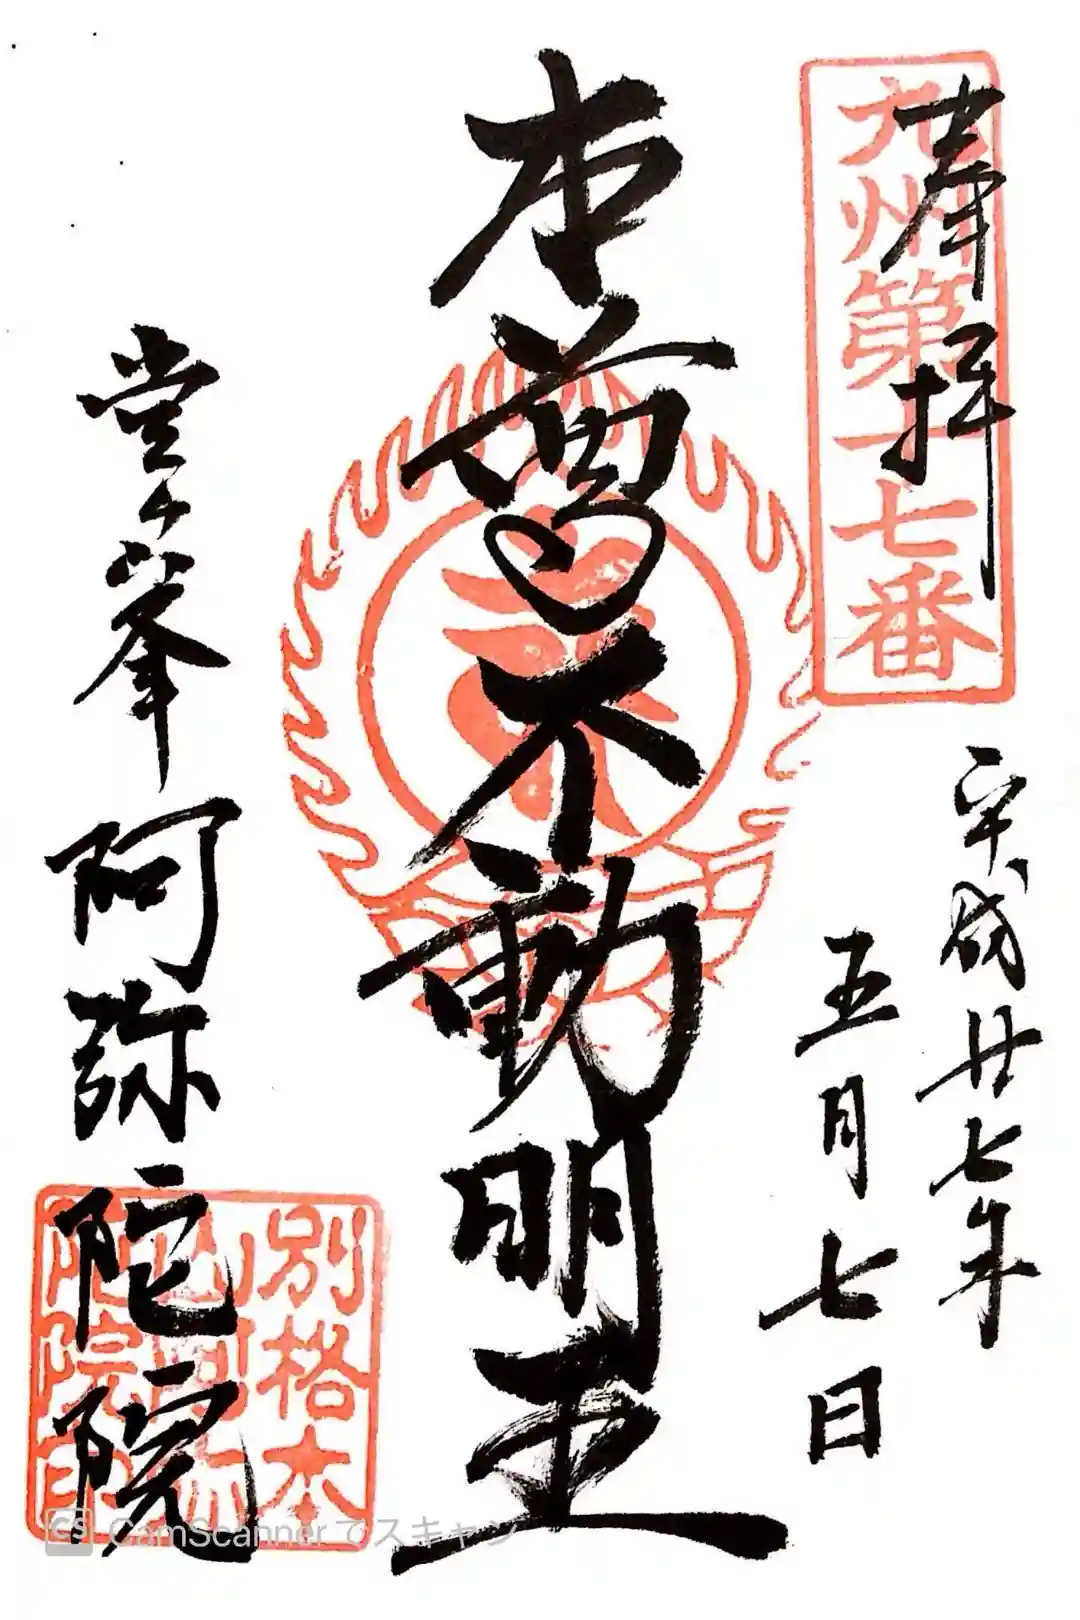 奉拝
九州第十七番
平成廿七年
五月七日
本尊不動明王
堂ヶ峯
阿弥陀院
別格本
山阿弥
陀院印
CS CamScanner でスキャン